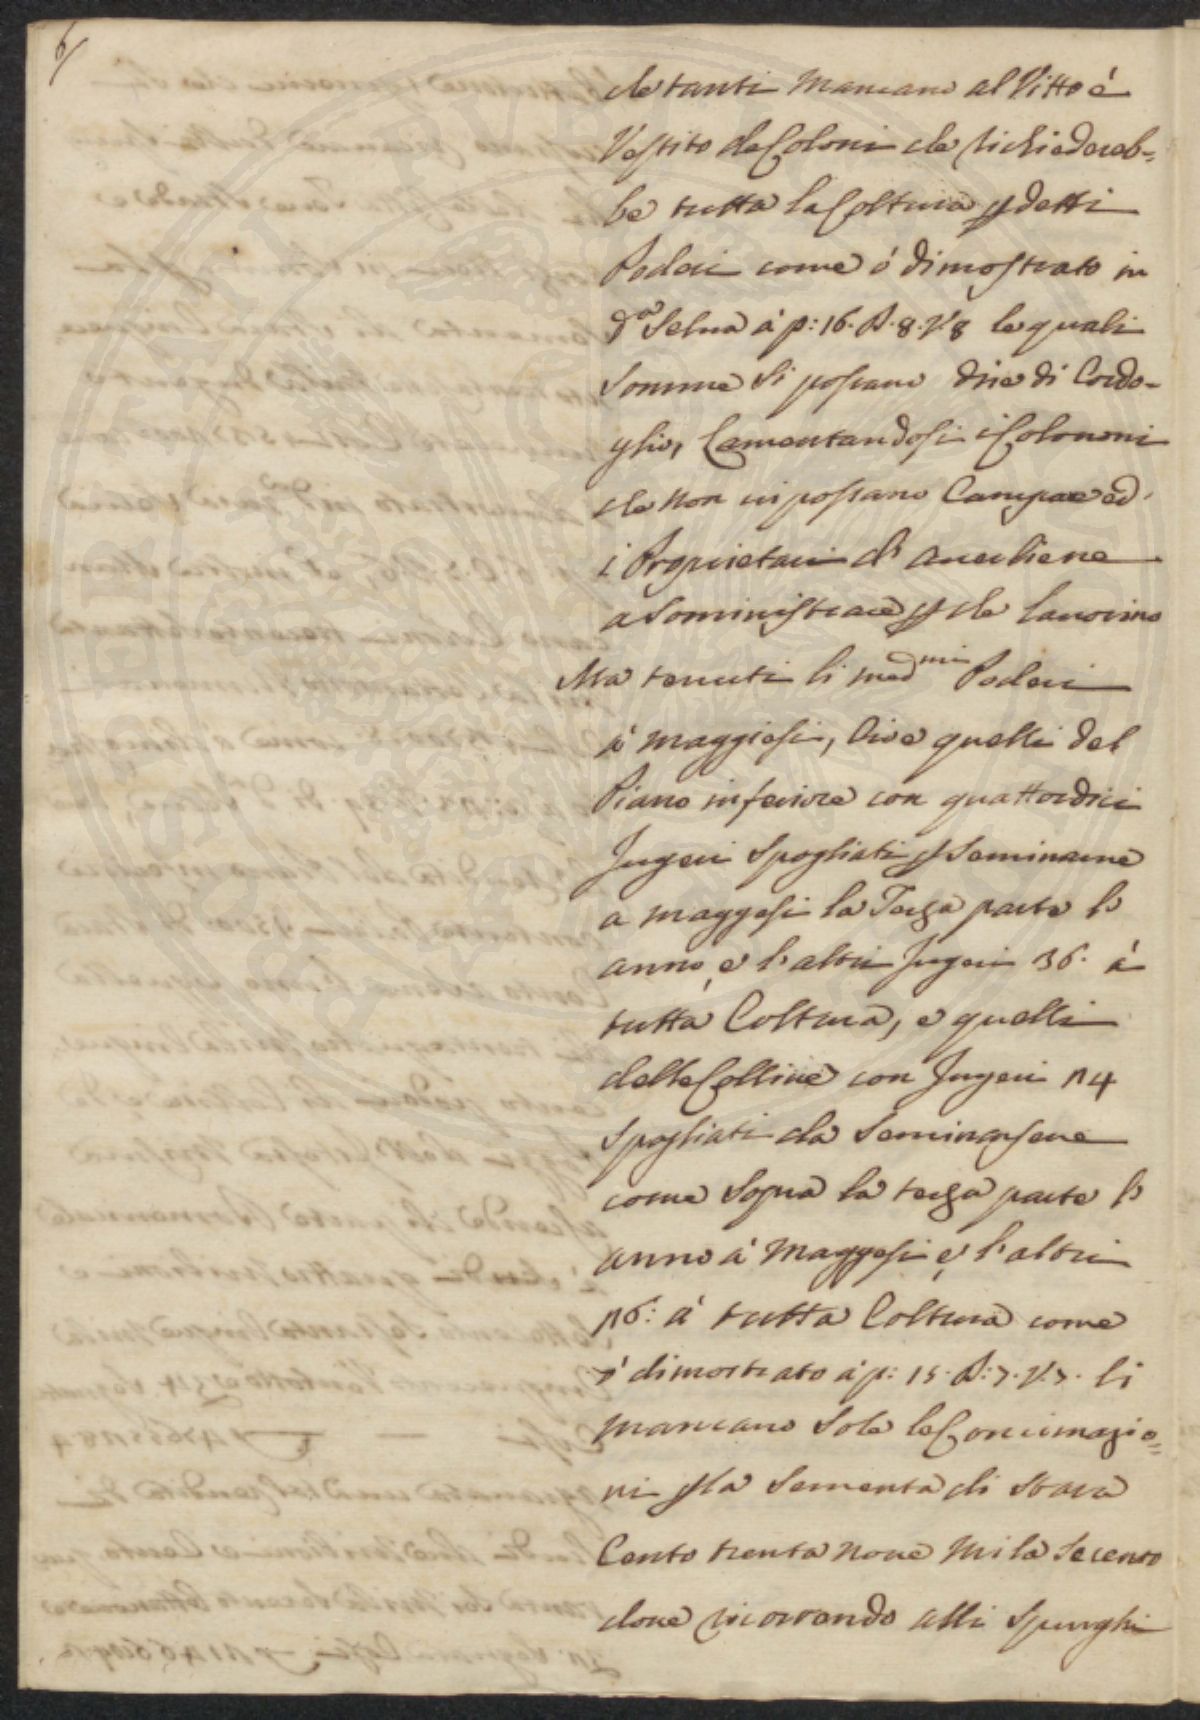 6/
che tanti Mancano al Vitto é
Vestito de Coloni che Richiedereb=
be tutta la Coltura p detti
Poderi come é dimostrato in
da Selua á p: 16. R. 8. V. 8 le quali
Somme Si possano dire di Cordo-
glio, Lamentandosi i Colononi
che non ui possano Campare ed
i Proprietari di
a Sominstrare p che lauorino
Ma tenuti li medmi Poderi
á Maggiesi, Cioe quelli del
Piano inferiore con quattordici
Jugeri Spogliati p Seminarne
a maggesi la Terza parte l'
anno, e l'altri Jugeri 36. á
tutta Coltura, e quelli
delle Colline con Jugeri 14
Spogliati da Seminarsene
come Sopra la terza parte l'
anno á Maggesi e l'altri
16: á tutta Coltura come
é dimostrato á p: 15. R: 7. V. 7. li
mancano Sole le Concimazio=
ni p la Sementa di Staia
Cento trenta noue Mila Secento
doue ricorrendo alli Spurghi